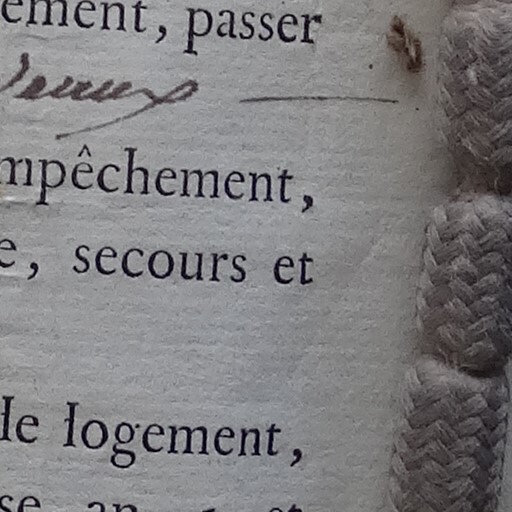 ement, passer
mpêchement,
e, secours et
le logement,
se an et